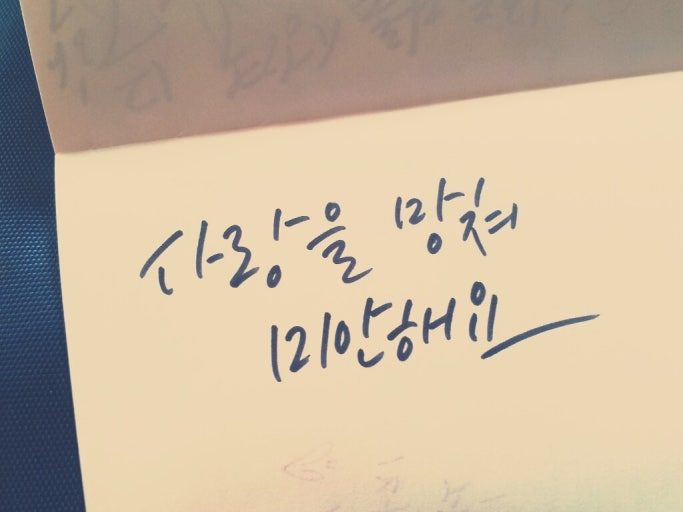 사랑을 망쳐
미안해요